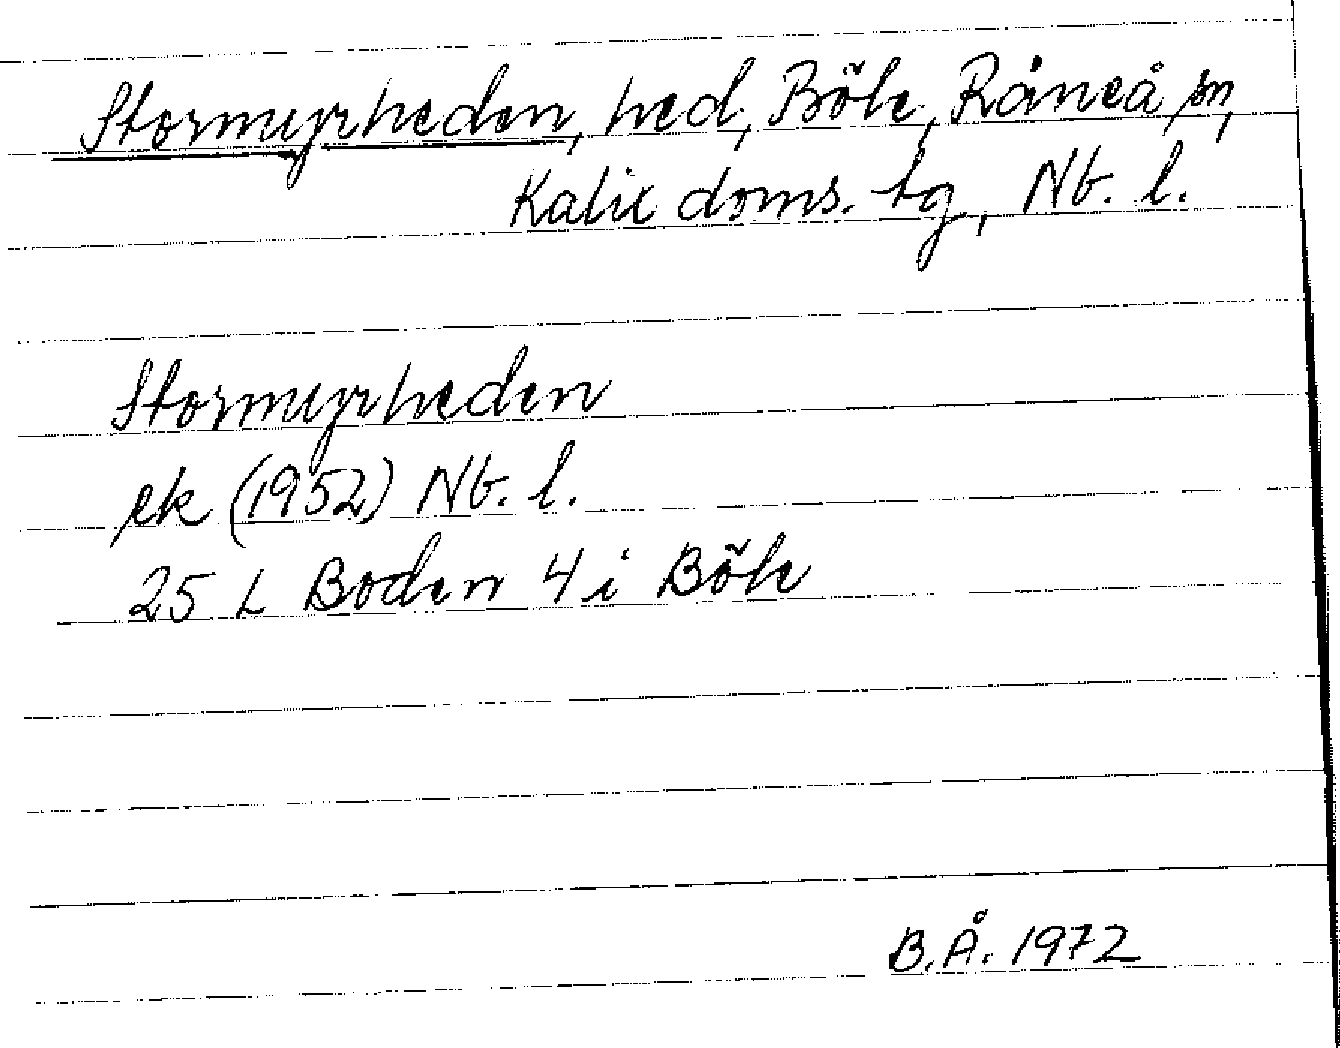 Stormyrheden, hed, Böle, Råneå sn,
Kalix doms. tg, Nb. l.
Stormyrheden
ek (1952) Nb. l.
25 L Boden 4 i Böle
B.Å. 1972